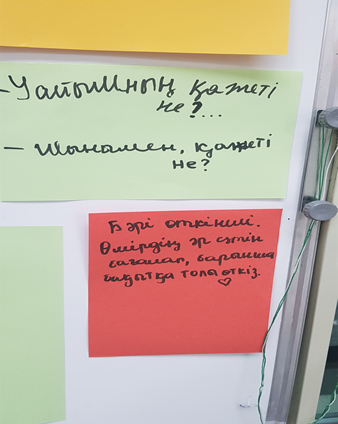 - Уайымның қажеті
не?...
- Шынымен, қажеті
не?
Бәрі өткінші.
Өмірдің әр сәтін
бағалап, барынша
бақытқа толы өткіз.
♡